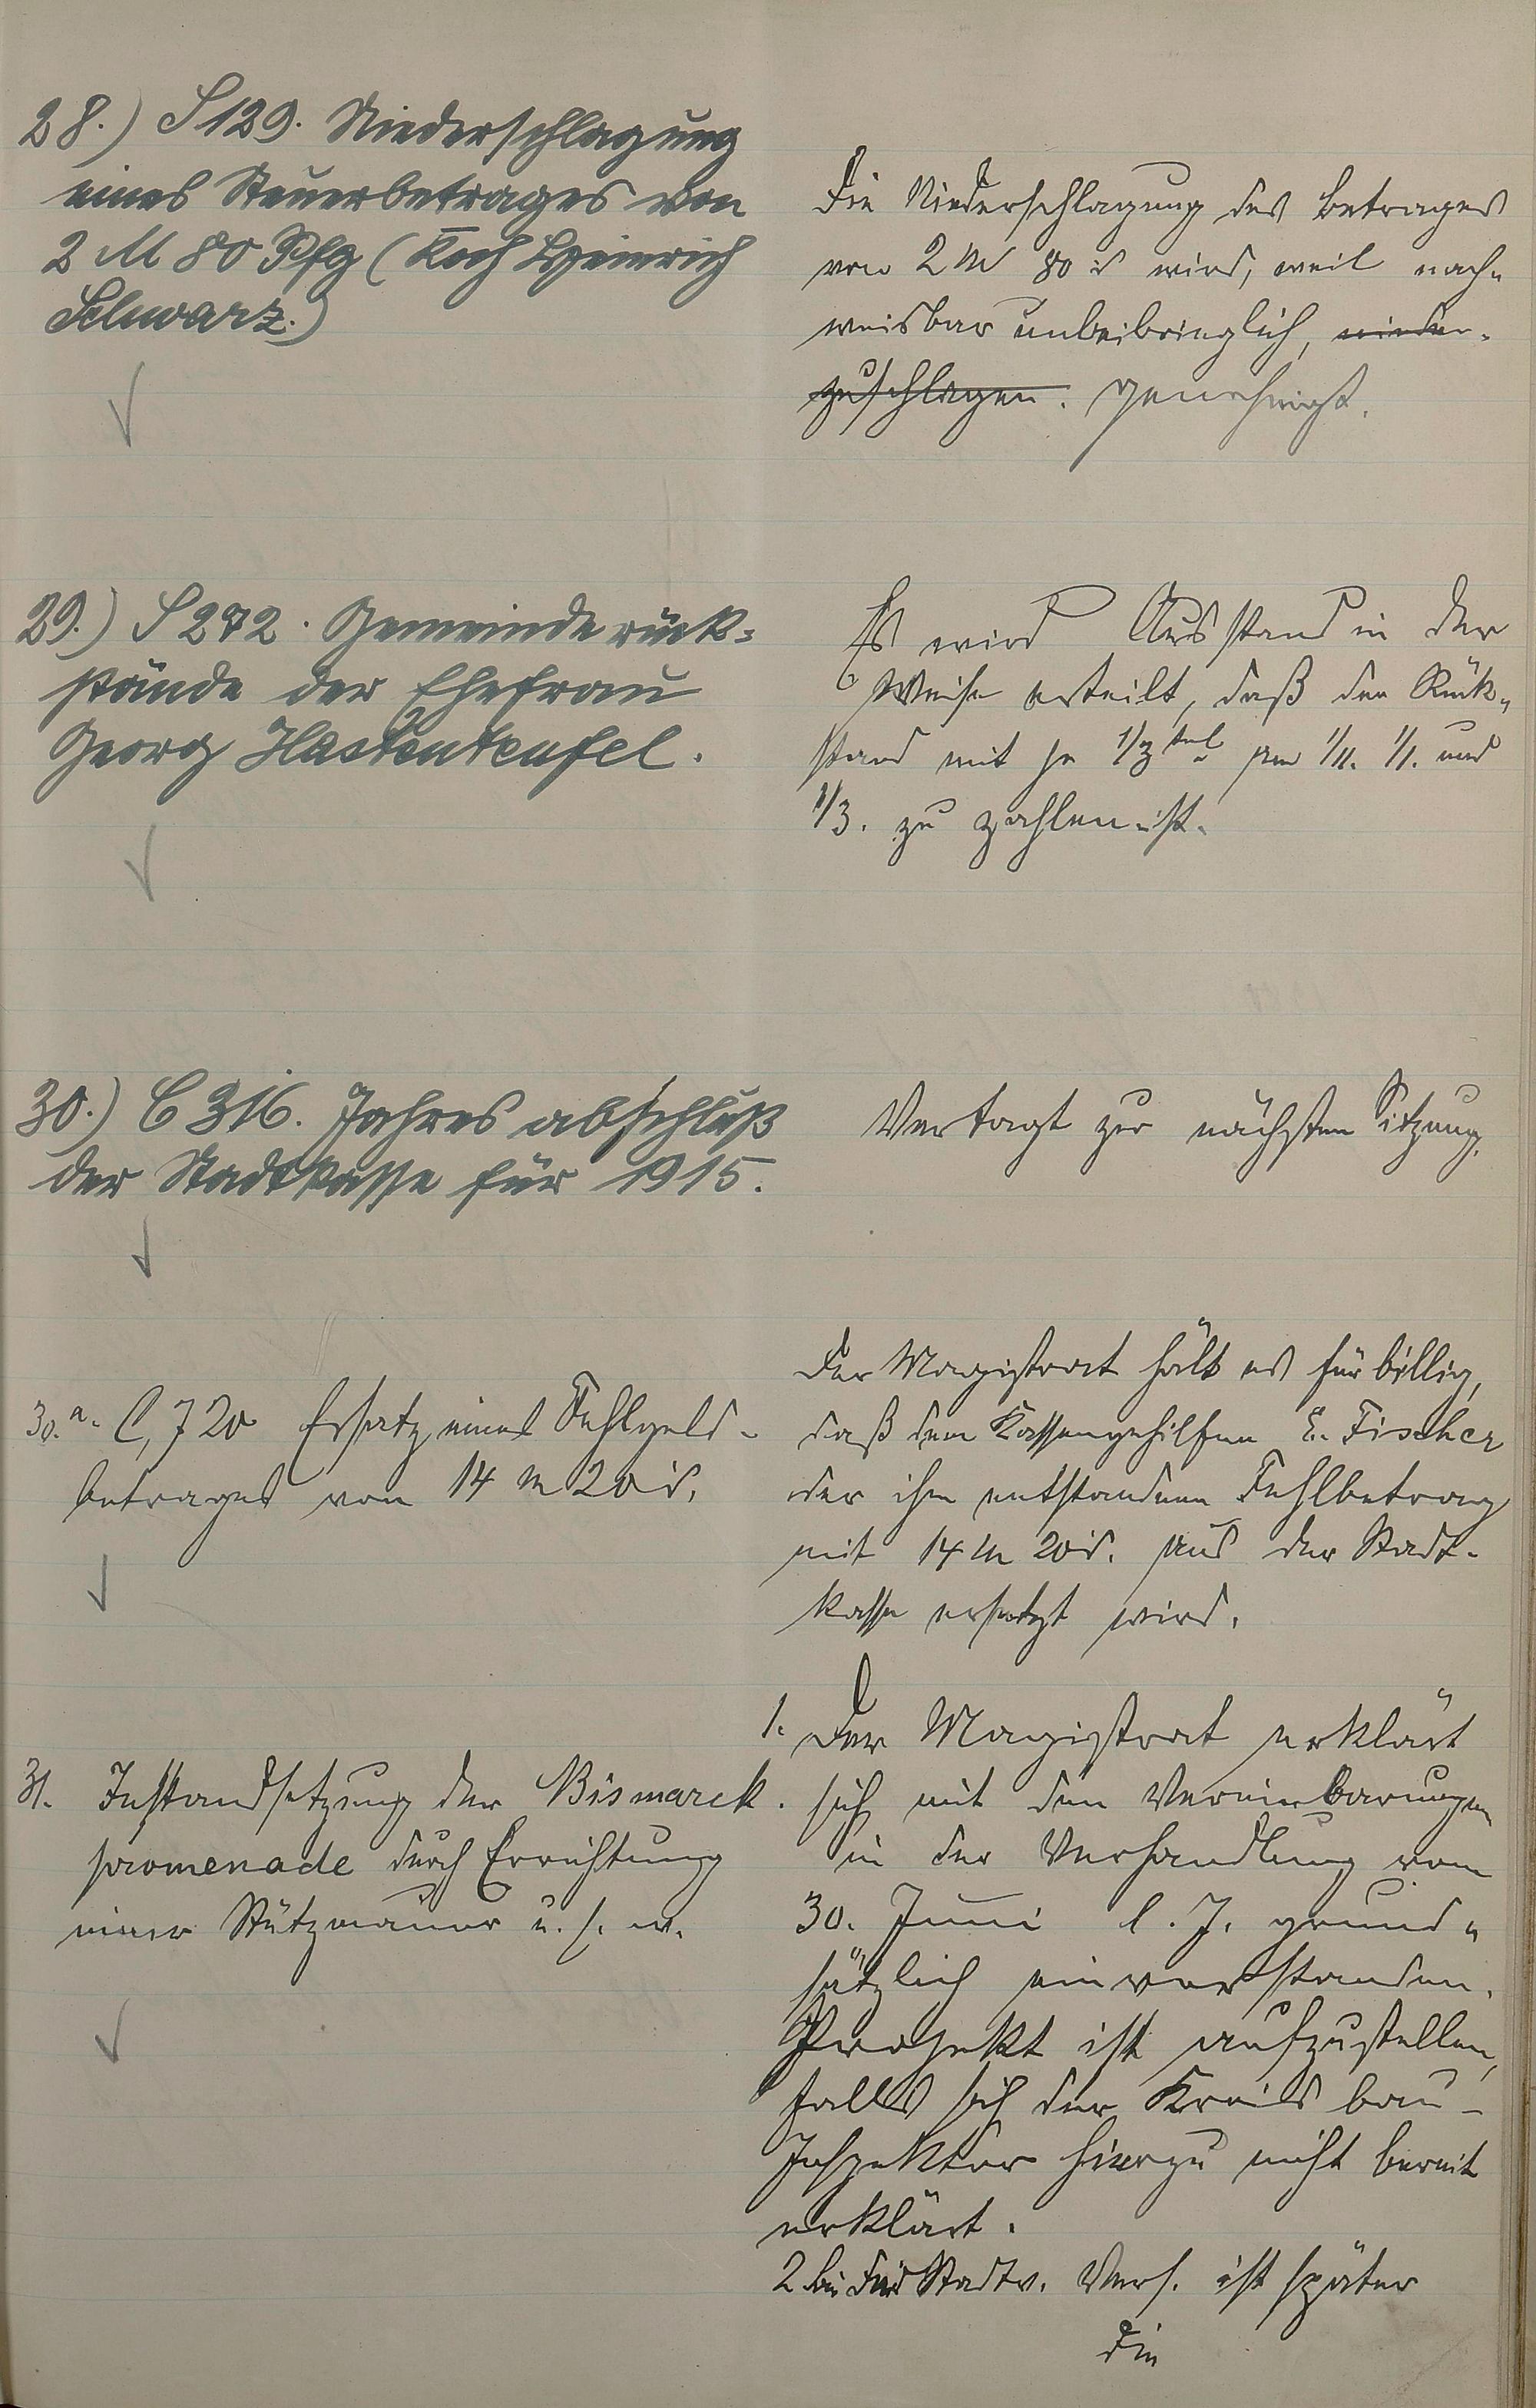 28.) S 129. Niederschlagung
eines Steuerbetrages von
2 M 80 Pfg (Koch Heinrich
Schwarz.)
Die Niederschlagung des Betrages
von 2 M 80 ₰ wird, weil nach-
weisbar unbeibringlich, nieder-
zuschlagen. genehmigt.
29.) S 272. Gemeinderück-
stände der Ehefrau
Georg Hastenteufel.
Es wird Ausstand in der
Weise erteilt, daß der Rück-
stand mit je 1/3tel am 1/11. 1/1. und
1/3. zu zahlen ist.
30.) C 316. Jahresabschluß
der Stadtkasse für 1915.
Vertagt zur nächsten Sitzung.
30.a. C, 720 Ersatz eines Fehlgeld-
betrages von 14 M 20 ₰.
Der Magistrat hält es für billig,
daß dem Kassengehilfen E. Fischer
der ihm entstandene Fehlbetrag
mit 14 M 20 ₰. aus der Stadt-
kasse ersetzt wird.
31. Instandsetzung der Bismarck-
promenade durch Errichtung
einer Stützmauer u. s. w.
1. Der Magistrat erklärt
sich mit den Vereinbarungen
in der Verhandlung vom
30. Juni l. J. grund-
sätzlich einverstanden.
Projekt ist aufzustellen,
falls sich der Kreisbau-
Inspektor hierzu nicht bereit
erklärt.
2. Die Stadtv. Vers. ist später
die